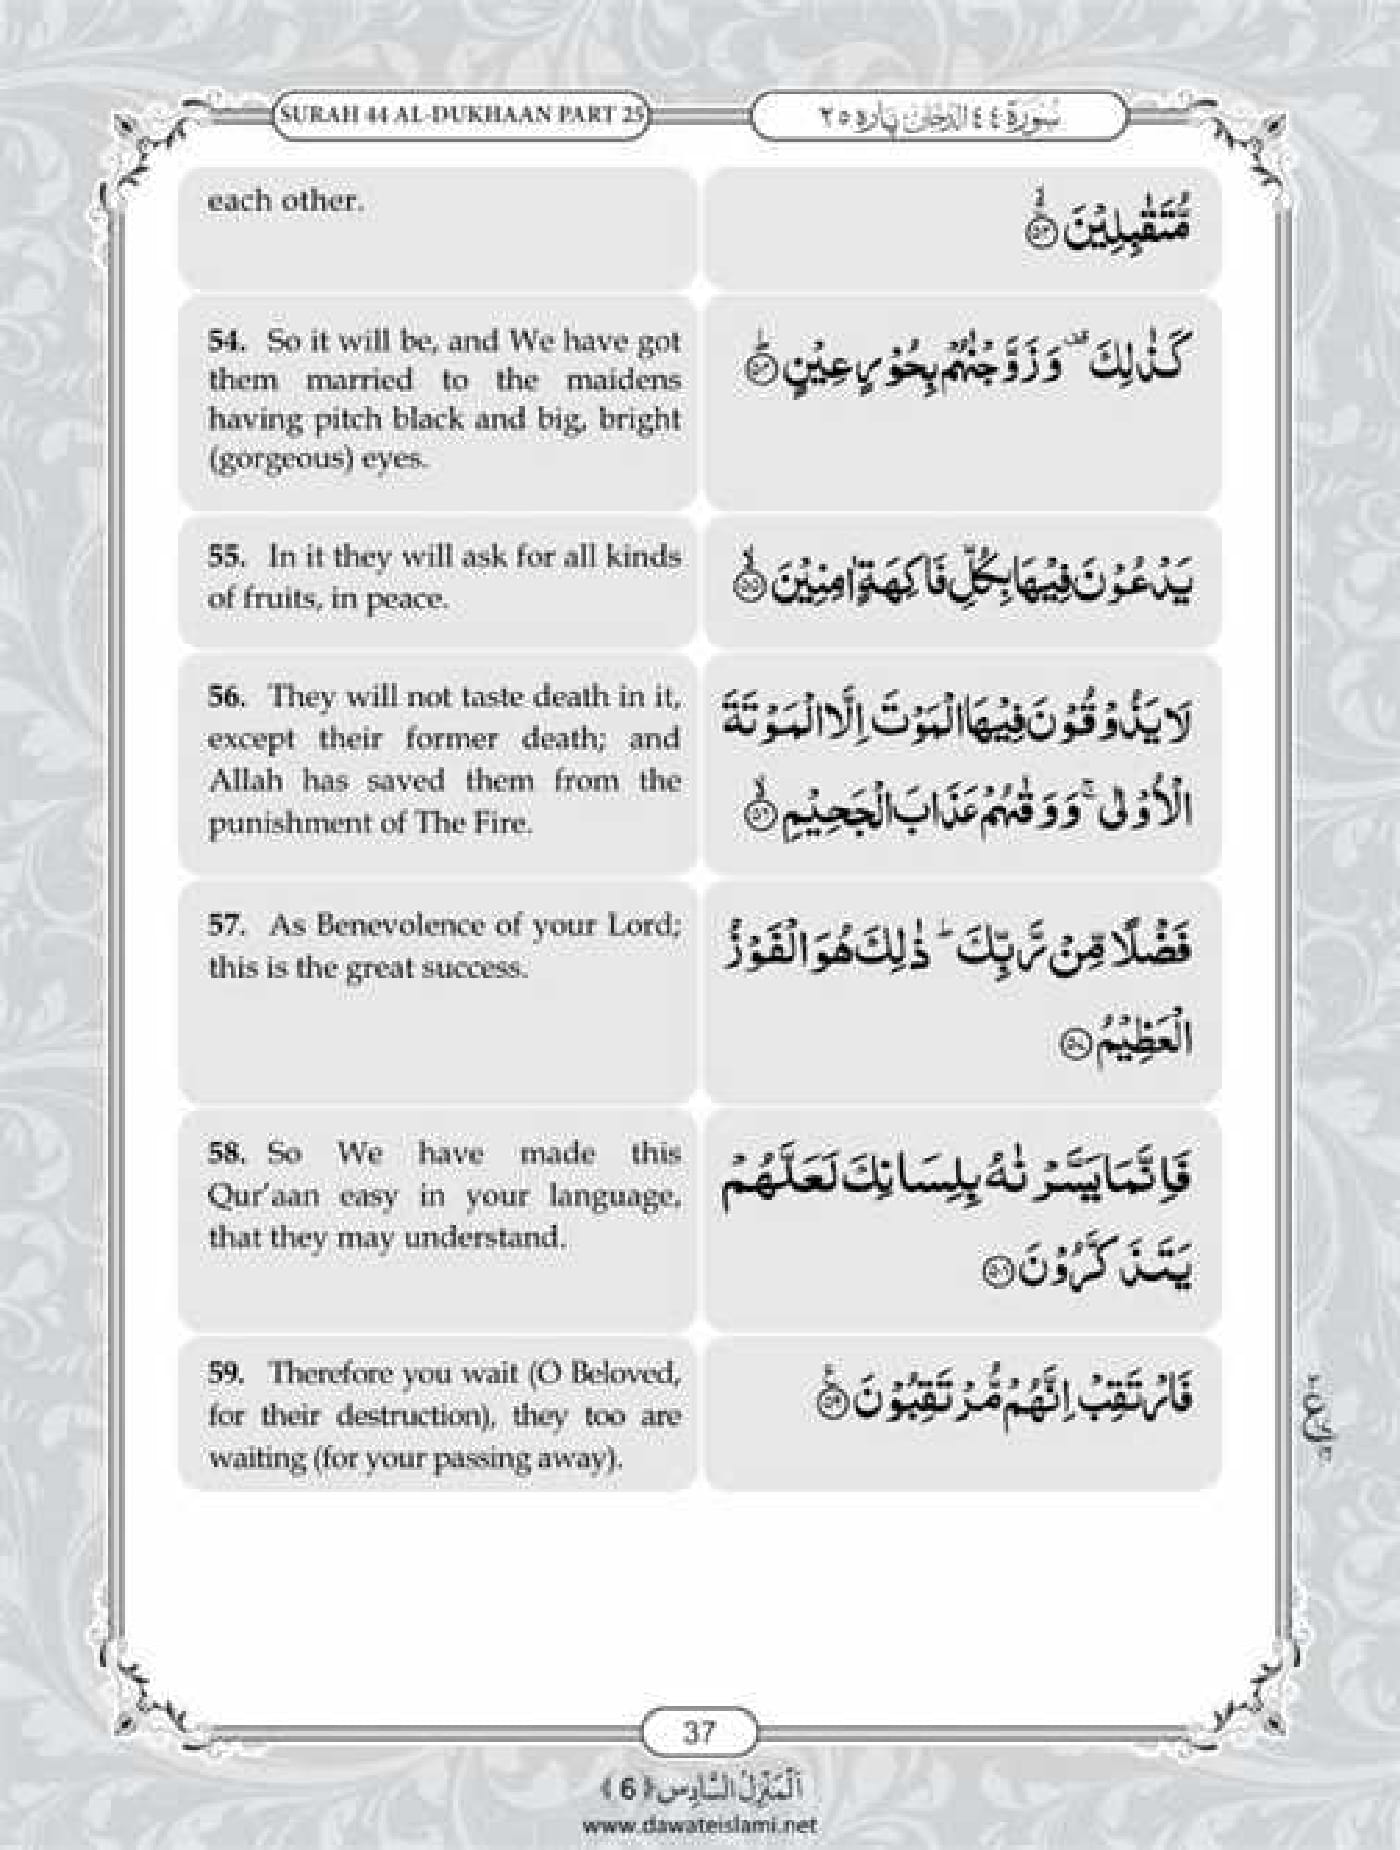 SURAH 44 AL-DUKHAAN PART 25
سُوْرَة ٤٤ الدخان پاره ٢٥
each other.
مُّتَقٰبِلِيْنَ ۙ﴿۵۳﴾
54. So it will be, and We have got
them married to the maidens
having pitch black and big, bright
(gorgeous) eyes.
كَذٰلِكَ ۫ وَ زَوَّجْنٰهُمْ بِحُوْرٍ عِيْنٍ ؕ﴿۵۴﴾
55. In it they will ask for all kinds
of fruits, in peace.
يَدْعُوْنَ فِيْهَا بِكُلِّ فَاكِهَةٍ اٰمِنِيْنَ ۙ﴿۵۵﴾
56. They will not taste death in it,
except their former death; and
Allah has saved them from the
punishment of The Fire.
لَا يَذُوْقُوْنَ فِيْهَا الْمَوْتَ اِلَّا الْمَوْتَةَ
الْاُوْلٰى ۚ وَ وَقٰىهُمْ عَذَابَ الْجَحِيْمِ ۙ﴿۵۶﴾
57. As Benevolence of your Lord;
this is the great success.
فَضْلًا مِّنْ رَّبِّكَ ؕ ذٰلِكَ هُوَ الْفَوْزُ
الْعَظِيْمُ ﴿۵۷﴾
58. So We have made this
Qur’aan easy in your language,
that they may understand.
فَاِنَّمَا يَسَّرْنٰهُ بِلِسَانِكَ لَعَلَّهُمْ
يَتَذَكَّرُوْنَ ﴿۵۸﴾
59. Therefore you wait (O Beloved,
for their destruction), they too are
waiting (for your passing away).
فَارْتَقِبْ اِنَّهُمْ مُّرْتَقِبُوْنَ ﴿۵۹﴾
37
اَلْمَنْزِلُ السَّادِس ﴿6﴾
www.dawateislami.net